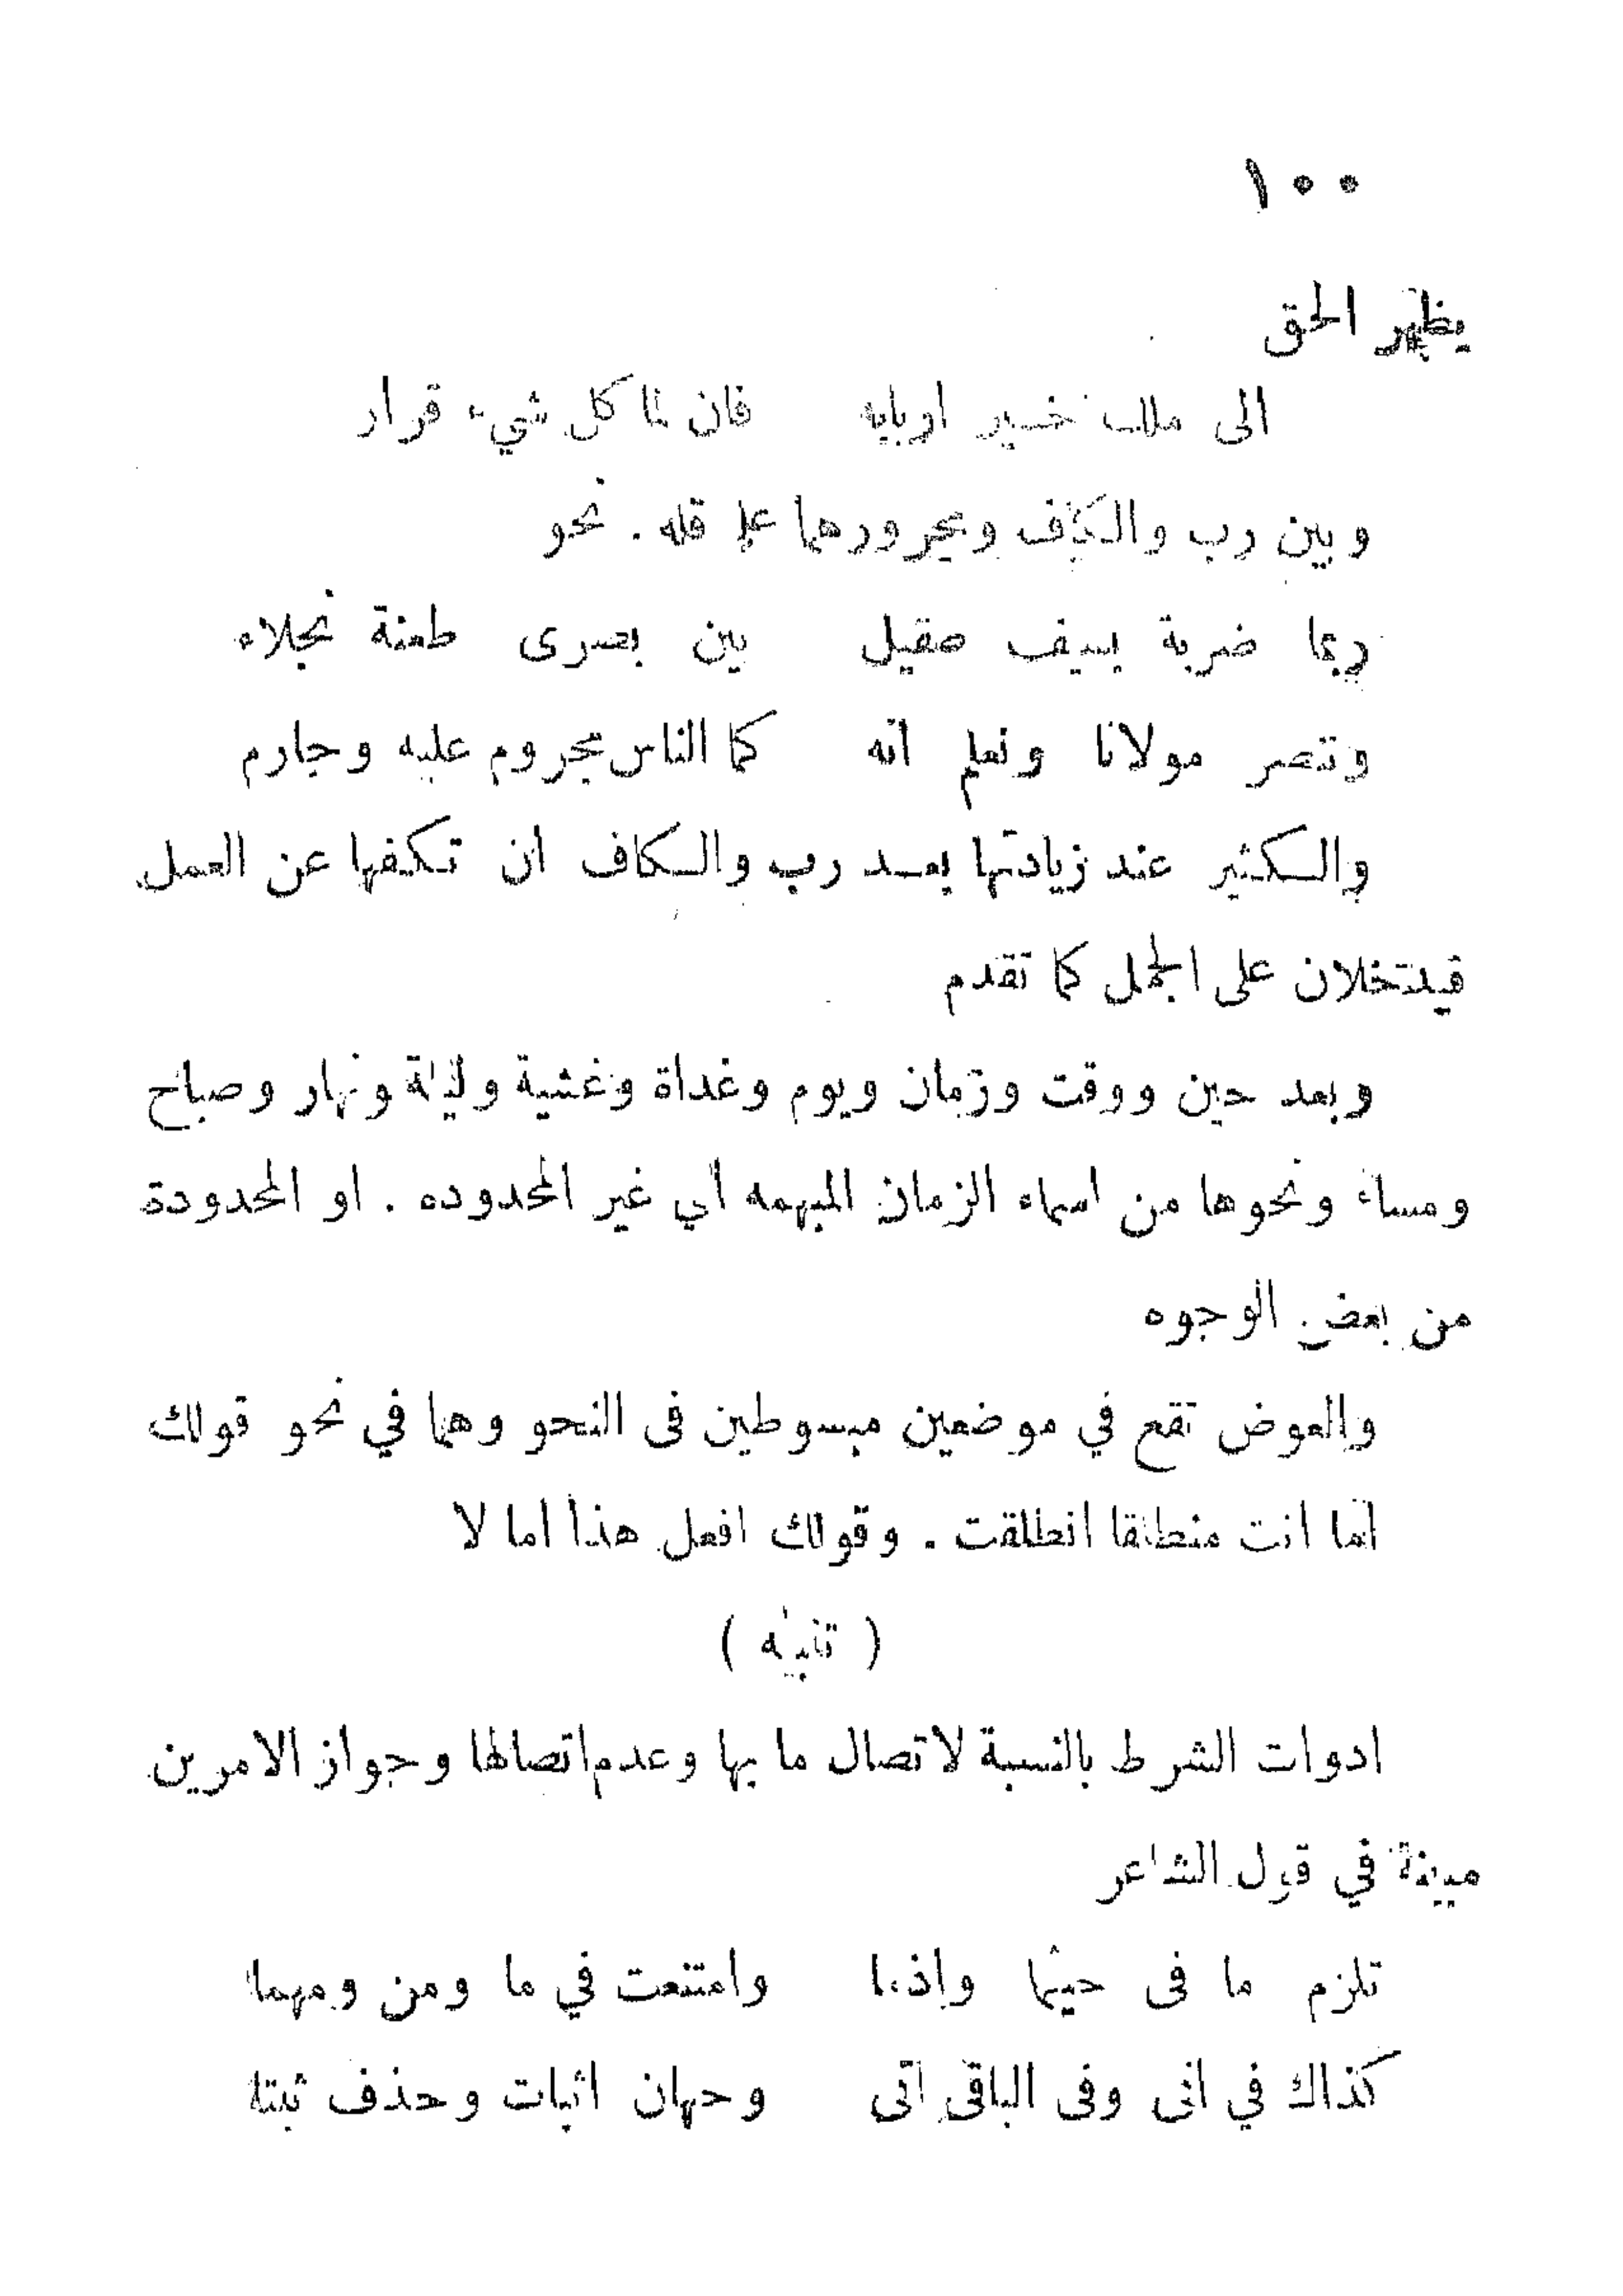 ١٠٠
يظهر الحق
الى ملك خسير اربابه فان لما كل شيء قرار
وبين رب والكاف ومجرورهما على قله . نحو
ربما ضربة بسيف صقيل بين بصرى طعنة نجلاء
وننصر مولانا ونعلم انه كما الناس مجروم عليه وجارم
والكثير عند زيادتها بعد رب والكاف ان تكفها عن العمل
فيدخلان على الجمل كما تقدم
وبعد حين ووقت وزمان ويوم وغداة وعشية وليلة ونهار وصباح
ومساء ونحوها من اسماء الزمان المبهمه أي غير المحدوده . او المحدودة
من بعض الوجوه
والعوض تقع في موضعين مبسوطين فى النحو وهما في نحو قولك
أما انت منطلقا انطلقت . وقولك افعل هذا اما لا
( تنبيه )
ادوات الشرط بالنسبة لاتصال ما بها وعدم اتصالها وجواز الامرين
مبينة في قول الشاعر
تلزم ما فى حيثما واذما وامتنعت في ما ومن ومهما
كذاك في انى وفى الباقى اتى وجهان اثبات وحذف ثبتا